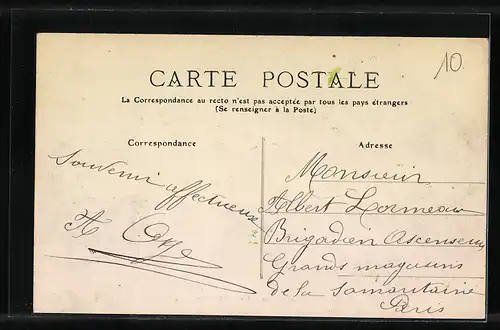 10
CARTE POSTALE
La Correspondance au recto n'est pas acceptée par tous les pays étrangers
(Se renseigner à la Poste)
Correspondance
Souvenir affectueux
A
Adresse
Monsieur
Albert Lormeau
Brigadier Ascenseurs
Grands magasins
de la Samaritaine
Paris